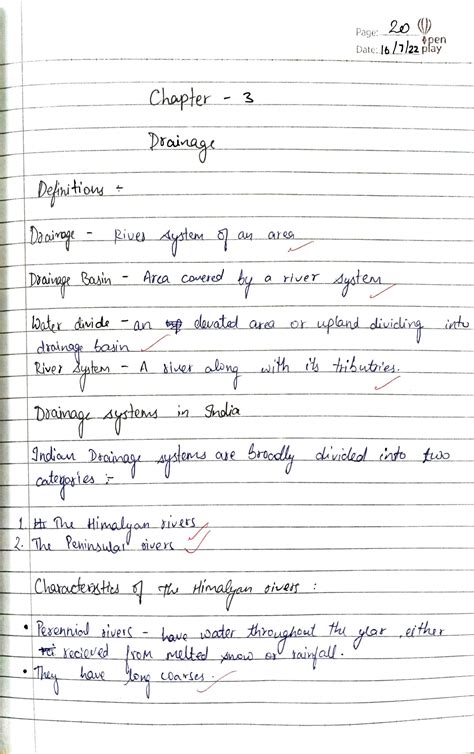 Page: 20
open
Date: 16/7/22 play
Chapter - 3
Drainage
Definitions :-
Drainage - River system of an area
Drainage Basin - Area covered by a river system
Water divide - an elevated area or upland dividing into
drainage basin
River System - A river along with its tributries.
Drainage systems in India
Indian Drainage systems are broadly divided into two
categories :-
1. The Himalyan rivers
2. The Peninsular rivers
Characteristics of The Himalyan rivers :
• Perennial rivers - have water throughout the year, either
recieved from melted snow or rainfall.
• They have long coarses.